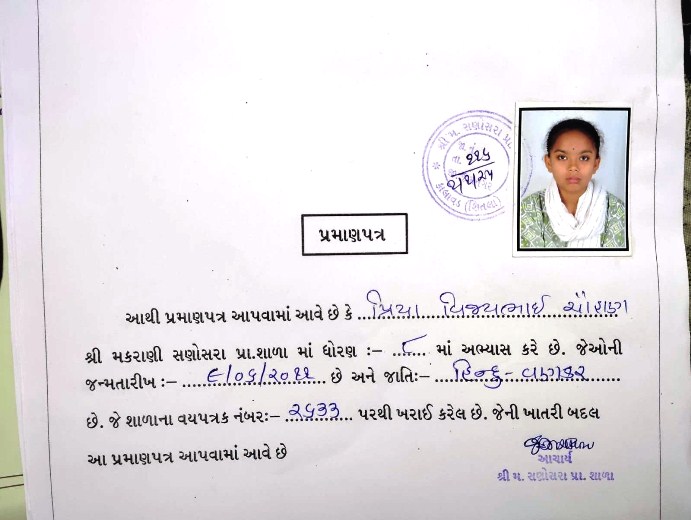 શ્રી મ. સણોસરા પ્રા.
કાલાવડ
પ્રમાણપત્ર
આથી પ્રમાણપત્ર આપવામાં આવે છે કે પ્રિયા વિજયભાઈ ચૌહાણ
શ્રી મકરાણી સણોસરા પ્રા.શાળા માં ધોરણ :- ૮ માં અભ્યાસ કરે છે. જેઓની
જન્મતારીખ :- ૯/૦૬/૨૦૧૧ છે અને જાતિ:- હિન્દુ - વણકર
છે. જે શાળાના વયપત્રક નંબર:- ૨૬૩૩ પરથી ખરાઈ કરેલ છે. જેની ખાતરી બદલ
આ પ્રમાણપત્ર આપવામાં આવે છે
આચાર્ય
શ્રી મ. સણોસરા પ્રા. શાળા